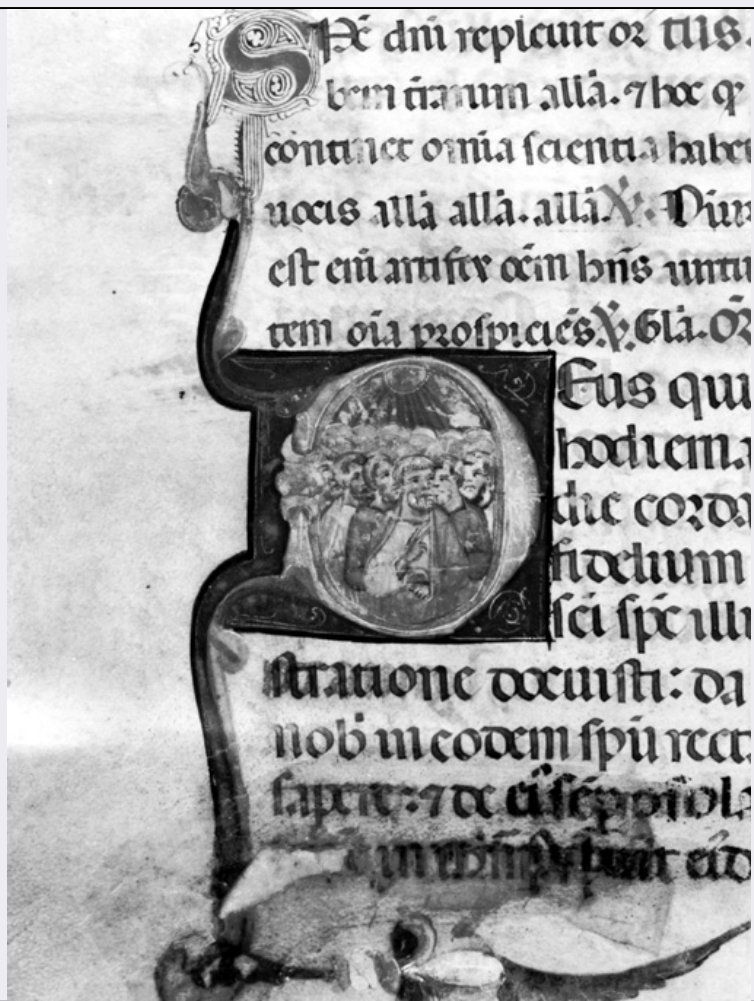 SPc dñi repleuit or tus.
bem tranum allã. ⁊ hoc q
continet omnia scientia habe
uocis allã allã. allã. ℣. Diui
est eni artifex oem hñs uirtu
tem oia prospiciẽs ℣. Glã. Oř
DEus qui
hodierna
die corda
fidelium
sci sp̃c illu
stratione docuisti: da
nob in eodem spũ rect
sapere: ⁊ de